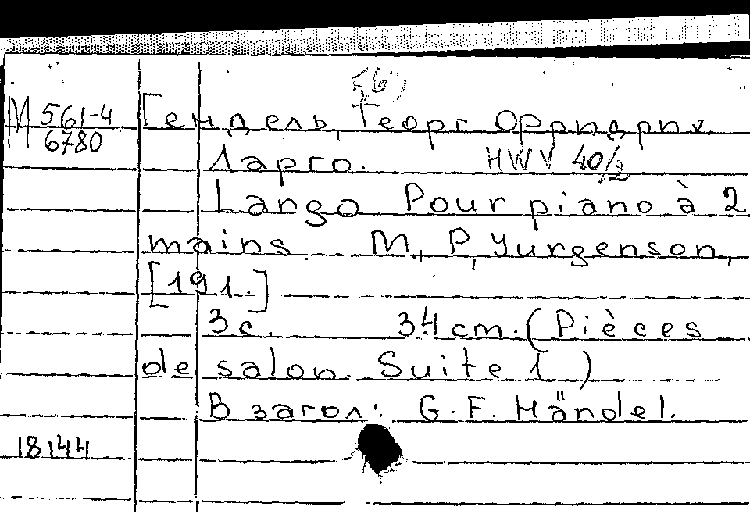 (6)
М 561-4 Гендель, Георг Фридрих.
6780
Ларго. HWV 40/2
Largo Pour piano à 2
mains. M., P. Jurgenson,
[191.]
3 с. 34 cm. (Pièces
de salon. Suite 1)
В загол.: G. F. Händel.
18144